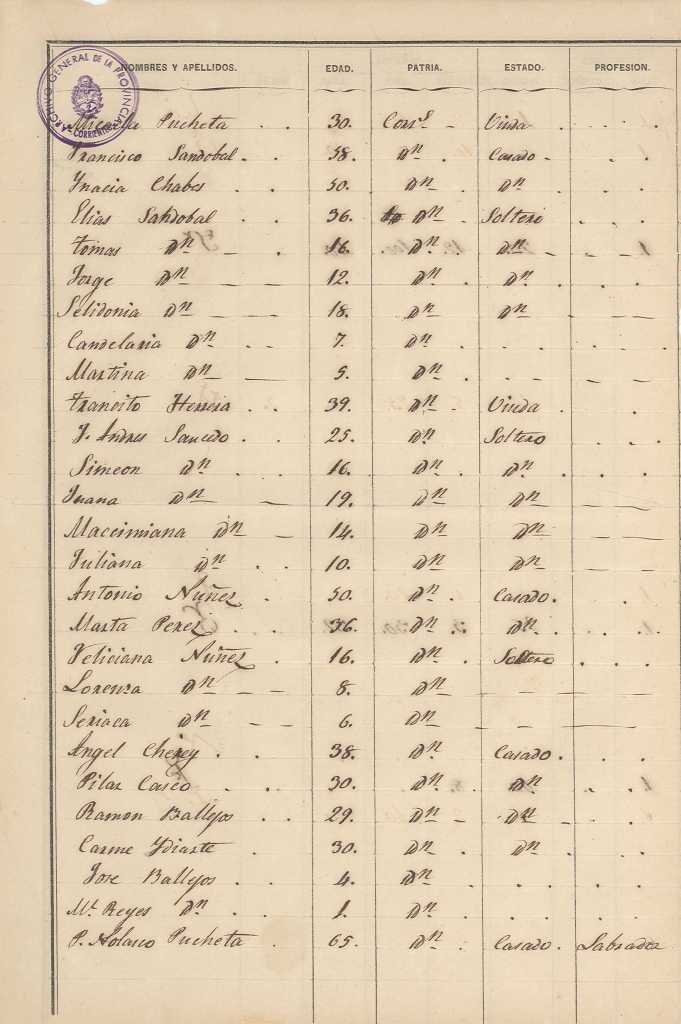 ARCHIVO GENERAL DE LA PROVINCIA CORRIENTES
NOMBRES Y APELLIDOS. EDAD. PATRIA. ESTADO. PROFESION.
Pucheta . . 30. Corrs - Viuda . . . .
Francisco Sandobal . . 58. Dn . Casado .
Ynacia Chabes . . 50. Dn . Dn . . . .
Elias Sandobal . . 36. Dn - Soltero . . . .
Tomas Dn - . 16. Dn . Dn - - . . -
Jorge Dn - - 12. Dn . Dn . . . .
Selidonia Dn - - 18. Dn - Dn - - - -
Candelaria Dn . . 7. Dn . . . . . .
Martina Dn - 5. Dn . . . - - -
Transito Herrera . . 39. Dn . Viuda . . .
J. Andres Saucedo . . 25. Dn Soltero . . .
Simeon Dn . . 16. Dn . Dn . . . .
Juana Dn - 19. Dn - Dn - - - -
Maccimiana Dn - 14. Dn - Dn - - - -
Juliana Dn . . 10. Dn - Dn - - - -
Antonio Nuñez . 50. Dn . Casado . . . .
Marta Perez . . 36. Dn . Dn . . . .
Feliciana Nuñez . 16. Dn . Soltero . . .
Lorenza Dn - - 8. Dn - - - - - -
Seriaca Dn - - 6. Dn - - - - -
Angel Cherey . . 38. Dn . Casado . . . .
Pilar Casco . . 30. Dn . Dn . . . .
Ramon Ballejos . . 29. Dn - Dn - . . .
Carme Ydiarte . 30. Dn - Dn . . . .
Jose Ballejos . . 4. Dn . . . . . .
Ma. Reyes Dn . . 1. Dn . . . . . .
P. Nolasco Pucheta . 65. Dn . Casado . Labrador